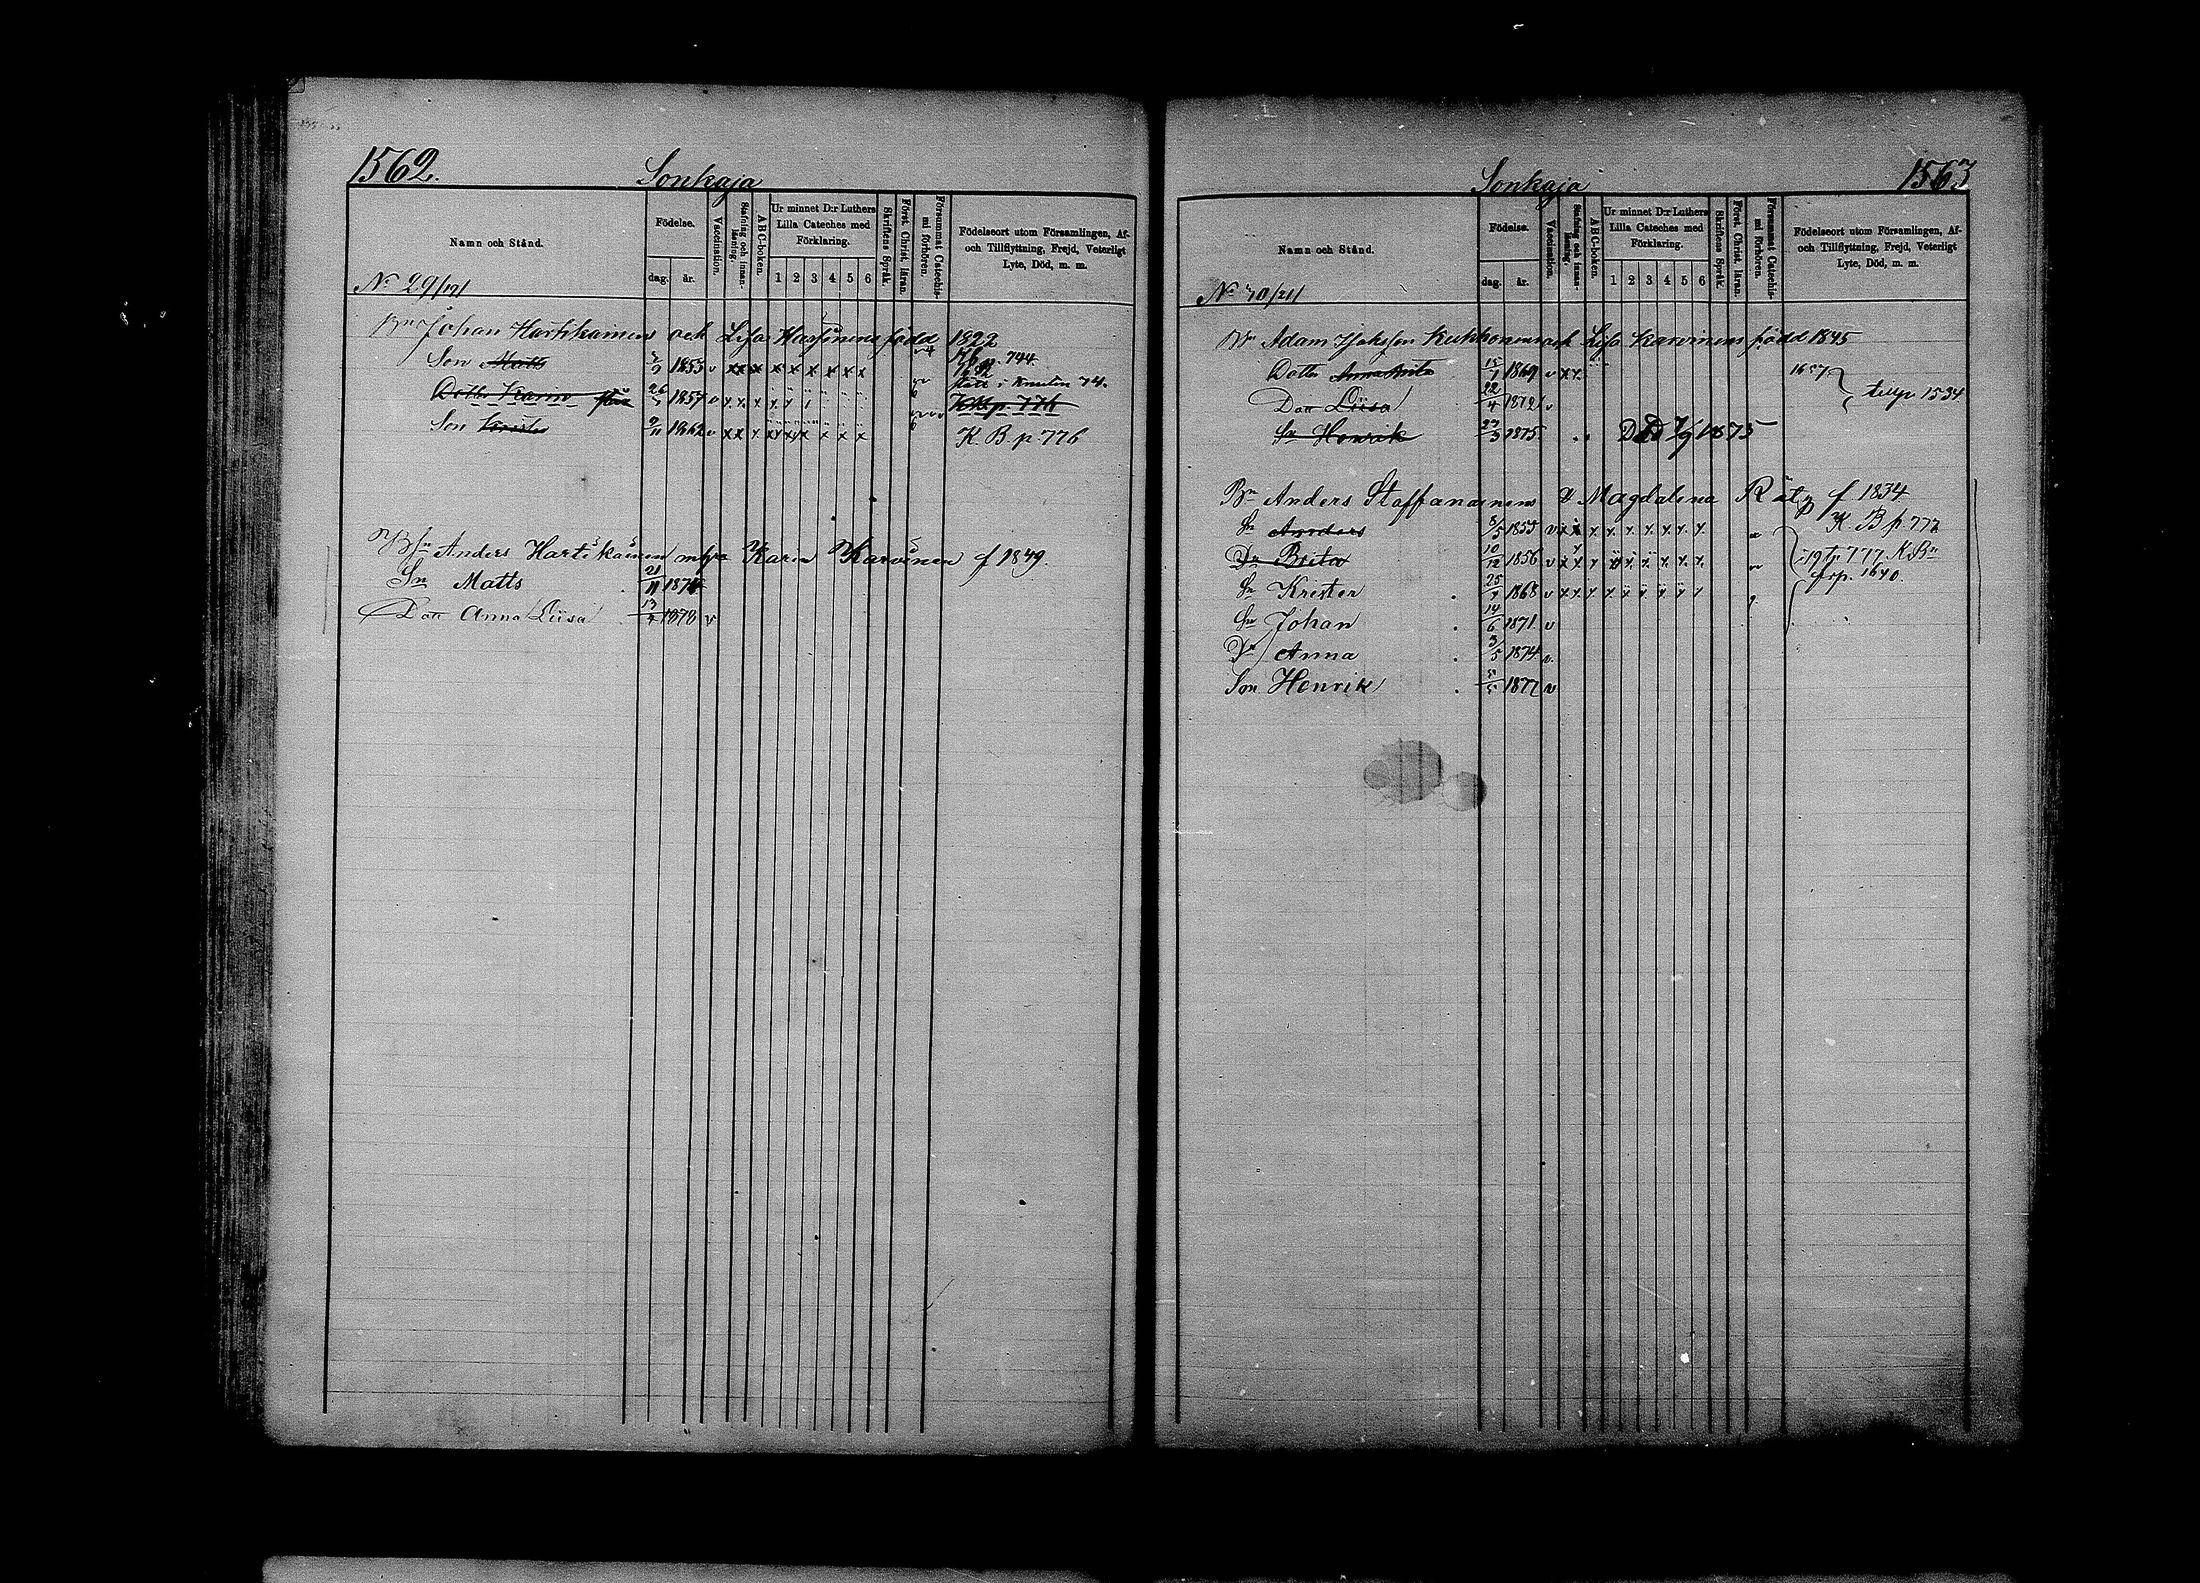 1562.
Sonkaja
Namn och Stånd.
Födelse.
dag.
år.
Vaccination.
Stafning och innanläsning.
ABC-boken.
Ur minnet D:r Luthers Lilla Cateches med Förklaring.
1 2 3 4 5 6
Skriftens Språk.
Förest. Christ. läran.
Försummat Catechismi förhören.
Födelseort utom Församlingen, Af- och Tillflyttning, Frejd, Veterligt Lyte, Död, m. m.
No 29/19/
Bn Johan Hartikainen och Lisa född 1822
Son Matts 1855 v x x x x x x x x p. 744.
Dottr Karin 26 1857 v i 74. K.B. p. 776
Son Krister 9/11 1862 v x x x x x x x x K. B. p. 776
Anders Hartikainen Karin Karvinen f 1849.
Sn Matts 21/11 1874
Dott Anna Liisa 13 1878 v
Sonkaja
1563
Namn och Stånd.
Födelse.
dag.
år.
Vaccination.
Stafning och innanläsning.
ABC-boken.
Ur minnet D:r Luthers Lilla Cateches med Förklaring.
1 2 3 4 5 6
Skriftens Språk.
Förest. Christ. läran.
Försummat Catechismi förhören.
Födelseort utom Församlingen, Af- och Tillflyttning, Frejd, Veterligt Lyte, Död, m. m.
No
Adam Kukkonens och Lisa född 1845
Dotter Anna Brita 15/1 1869 v x x
Dott Liisa 22/4 1872 v 1534
Sn Henrik 27/3 1875 Död 7/9 1875
Bn Anders Staffanainens Magdalena Räty f 1834
Sn Anders 8/5 1855 v x x x x x x x x K. B. p 777
Dr Brita 10/12 1856 v x x x x x x x x p 777 K.B.
Sn Krister 25 1868 v x x x x x x x p. 1640.
Sn Johan 14/6 1871 v
Dr Anna 3/5 1874 v.
Son Henrik 1877 v